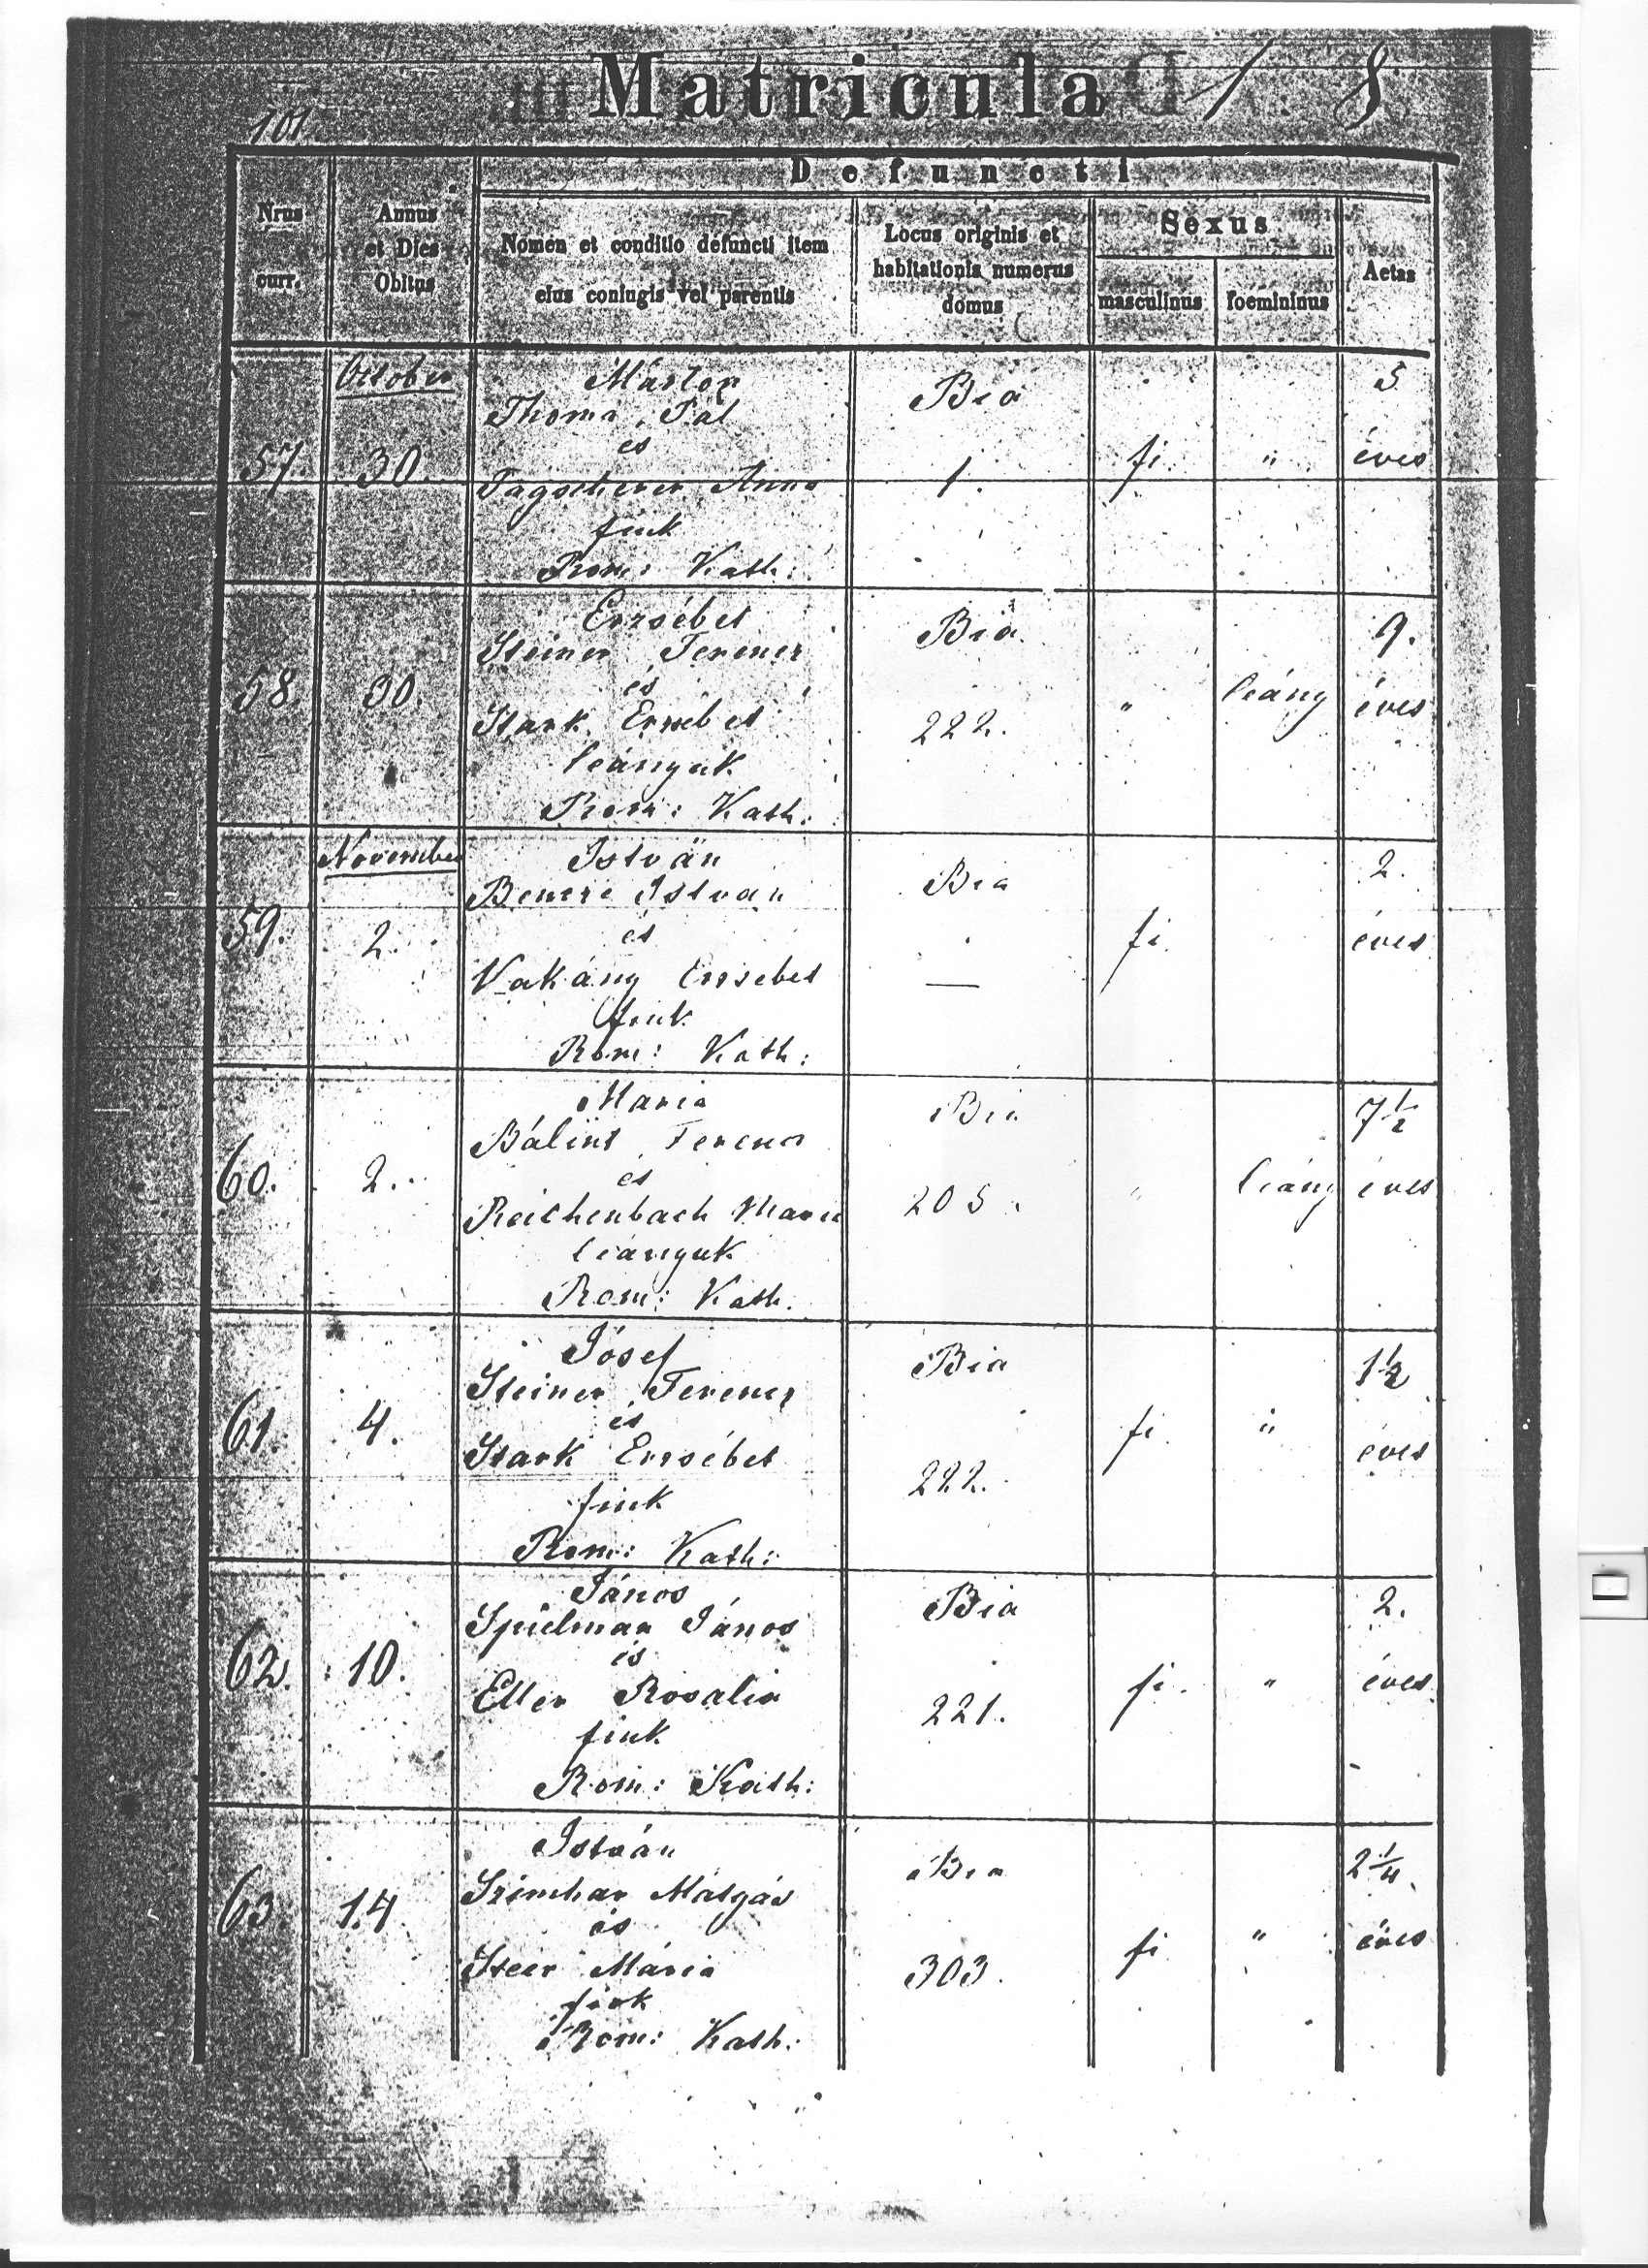 Matricula
1 8
101
Defuncti
Nrus curr.
Annus et Dies Obitus
Nomen et conditio defuncti item eius coniugis vel parentis
Locus originis et habitationis numerus domus
Sexus
masculinus
foemininus
Aetas
October
57. 30.
Márton
Thoma Pál
és
Tagscherer Anna
fiuk
Rom: Kath:
Bia
1.
fi „
5
éves
58. 30.
Erzsébet
Steiner Ferencz
és
Stark Erzsébet
leányuk
Rom: Kath:
Bia
222.
„ leány
9.
éves
November
59. 2.
István
Bencze István
és
Vakány Erzsebet
fiuk
Rom: Kath:
Bia
—
fi.
2.
éves
60. 2.
Maria
Bálint Ferencz
és
Reichenbach Maria
leányuk
Rom: Kath.
Bia
205.
„ leány
7 1/2
éves
61. 4.
Jósef
Steiner Ferencz
és
Stark Erzsébet
fiuk
Rom: Kath:
Bia
222.
fi „
1 1/2
éves
62. 10.
János
Spielman János
és
Eller Rosalia
fiuk
Rom: Kath:
Bia
221.
fi. „
2.
éves
63. 14.
István
Szimhar Matyás
és
Steer Mária
fiok
Rom: Kath:
Bia
303.
fi „
2 1/4.
éves